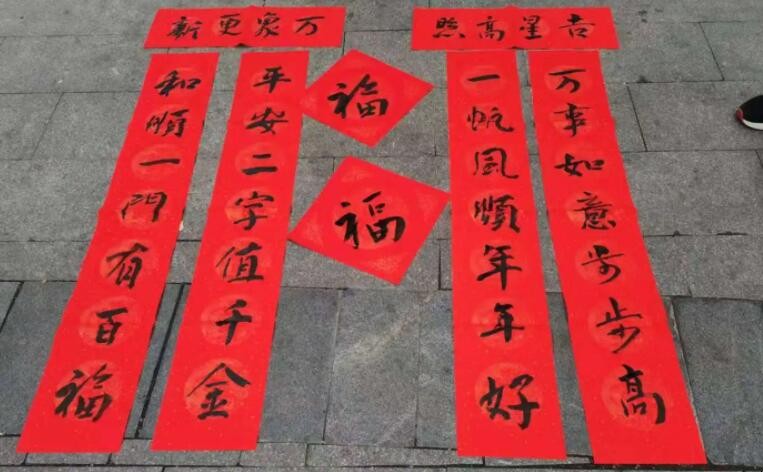 吉星高照
万事如意步步高
一帆风順年年好
福
福
万象更新
平安二字值千金
和順一门有百福